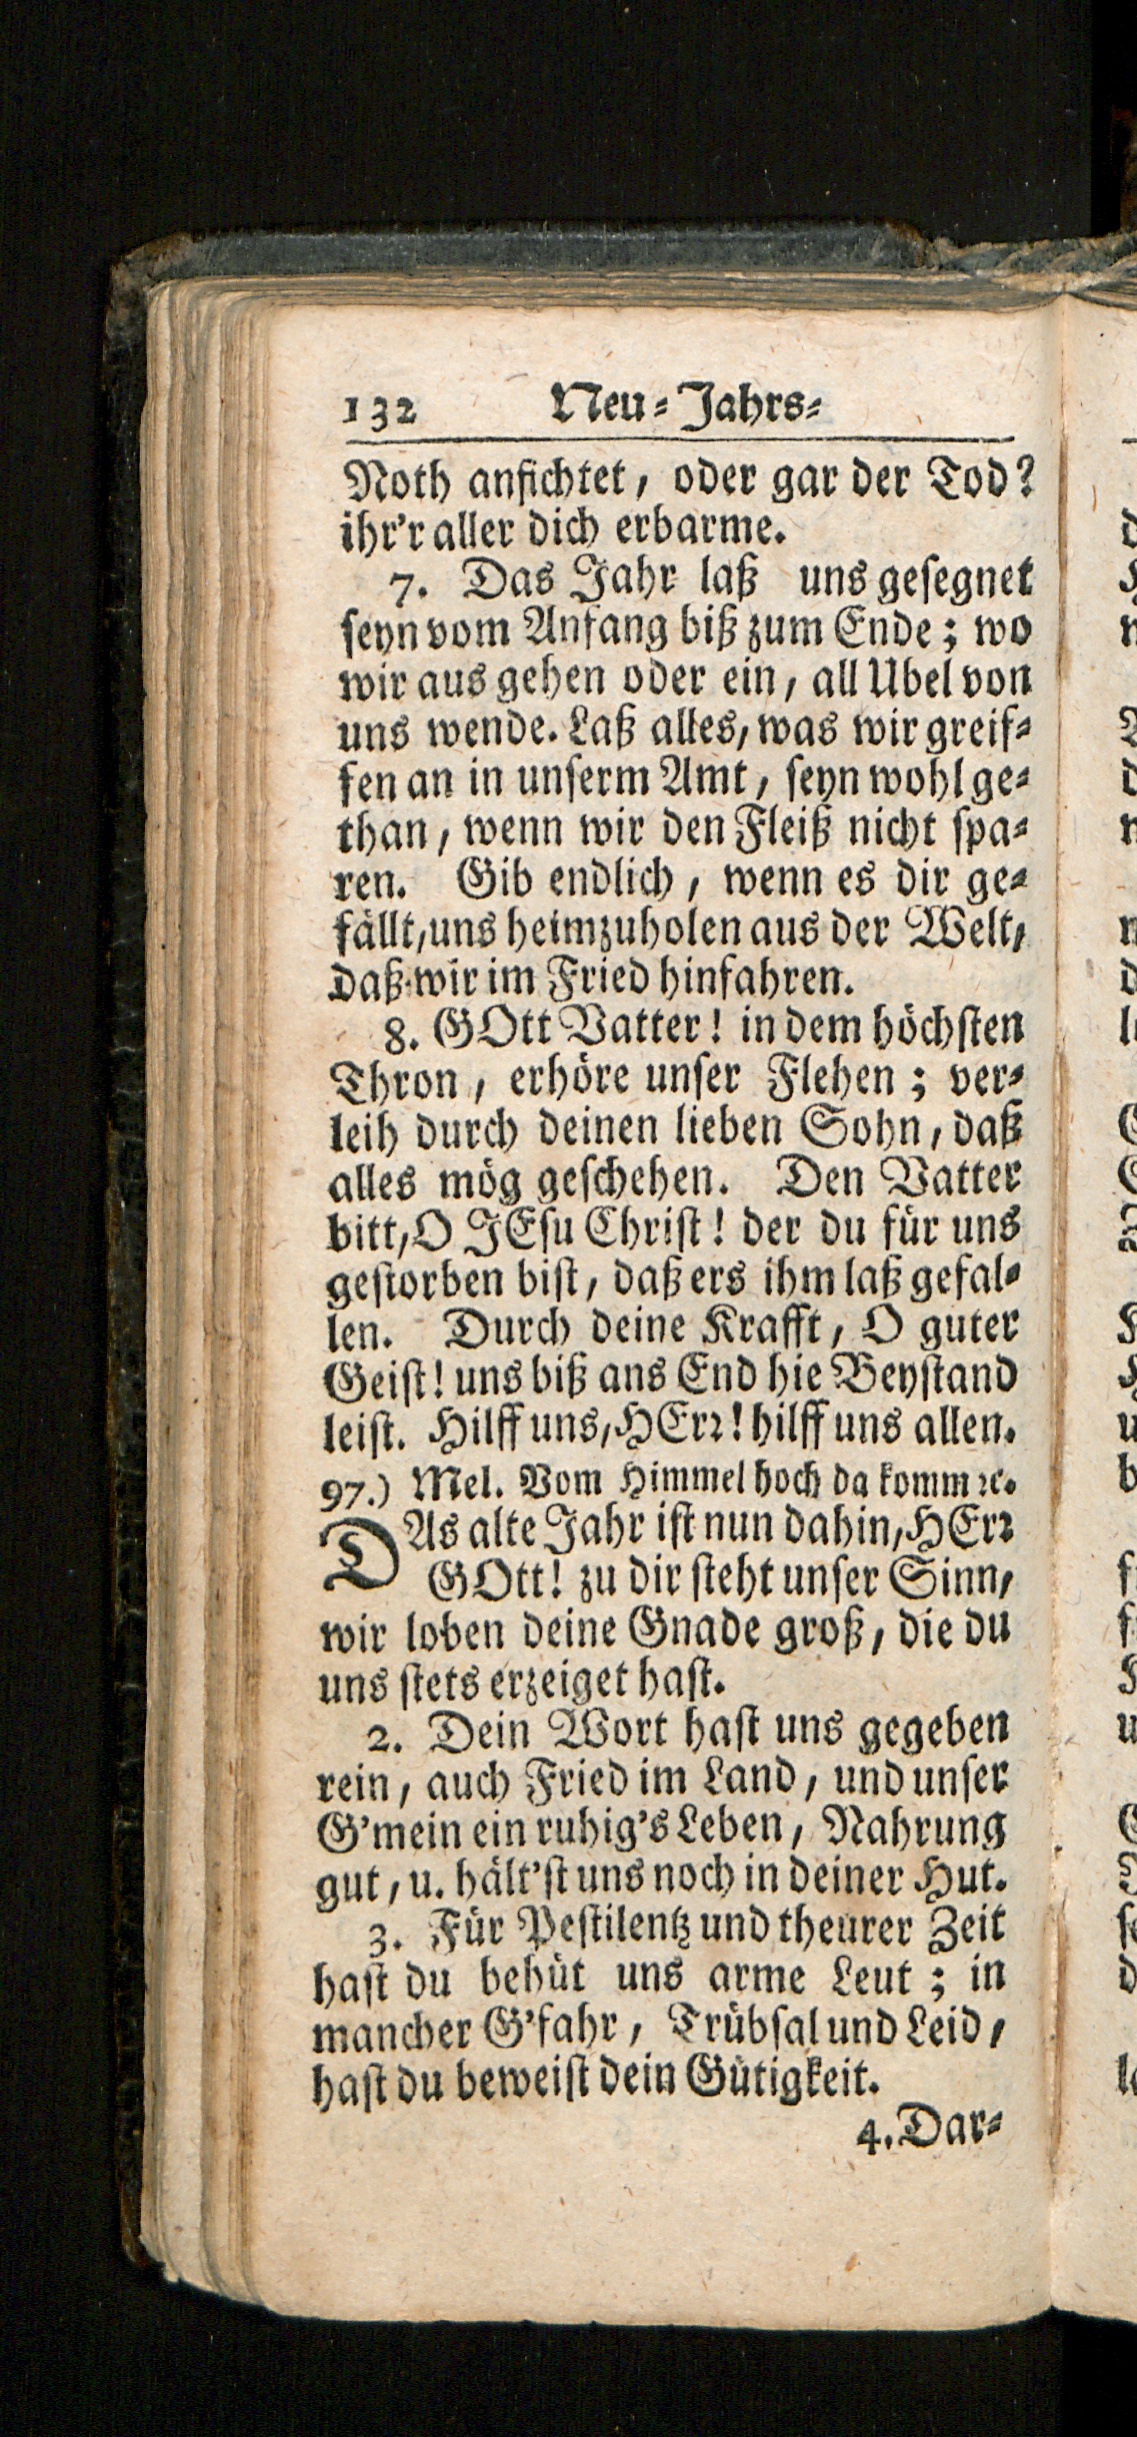 132 Neu-Jahrs-
Noth anfichtet, oder gar der Tod?
ihr'r aller dich erbarme.
7. Das Jahr laß uns gesegnet
seyn vom Anfang biß zum Ende; wo
wir aus gehen oder ein, all Ubel von
uns wende. Laß alles, was wir greif-
fen an in unserm Amt, seyn wohl ge-
than, wenn wir den Fleiß nicht spa-
ren. Gib endlich, wenn es dir ge-
fällt, uns heimzuholen aus der Welt,
daß wir im Fried hinfahren.
8. GOtt Vatter! in dem höchsten
Thron, erhöre unser Flehen; ver-
leih durch deinen lieben Sohn, daß
alles mög geschehen. Den Vatter
bitt, O JEsu Christ! der du für uns
gestorben bist, daß ers ihm laß gefal-
len. Durch deine Krafft, O guter
Geist! uns biß ans End hie Beystand
leist. Hilff uns, HErr! hilff uns allen.
97.) Mel. Vom Himmel hoch da komm ꝛc.
DAs alte Jahr ist nun dahin, HErr
GOtt! zu dir steht unser Sinn,
wir loben deine Gnade groß, die du
uns stets erzeiget hast.
2. Dein Wort hast uns gegeben
rein, auch Fried im Land, und unser
G'mein ein ruhig's Leben, Nahrung
gut, u. hält'st uns noch in deiner Hut.
3. Für Pestilentz und theurer Zeit
hast du behüt uns arme Leut; in
mancher G'fahr, Trübsal und Leid,
hast du beweist dein Gütigkeit.
4. Dar-